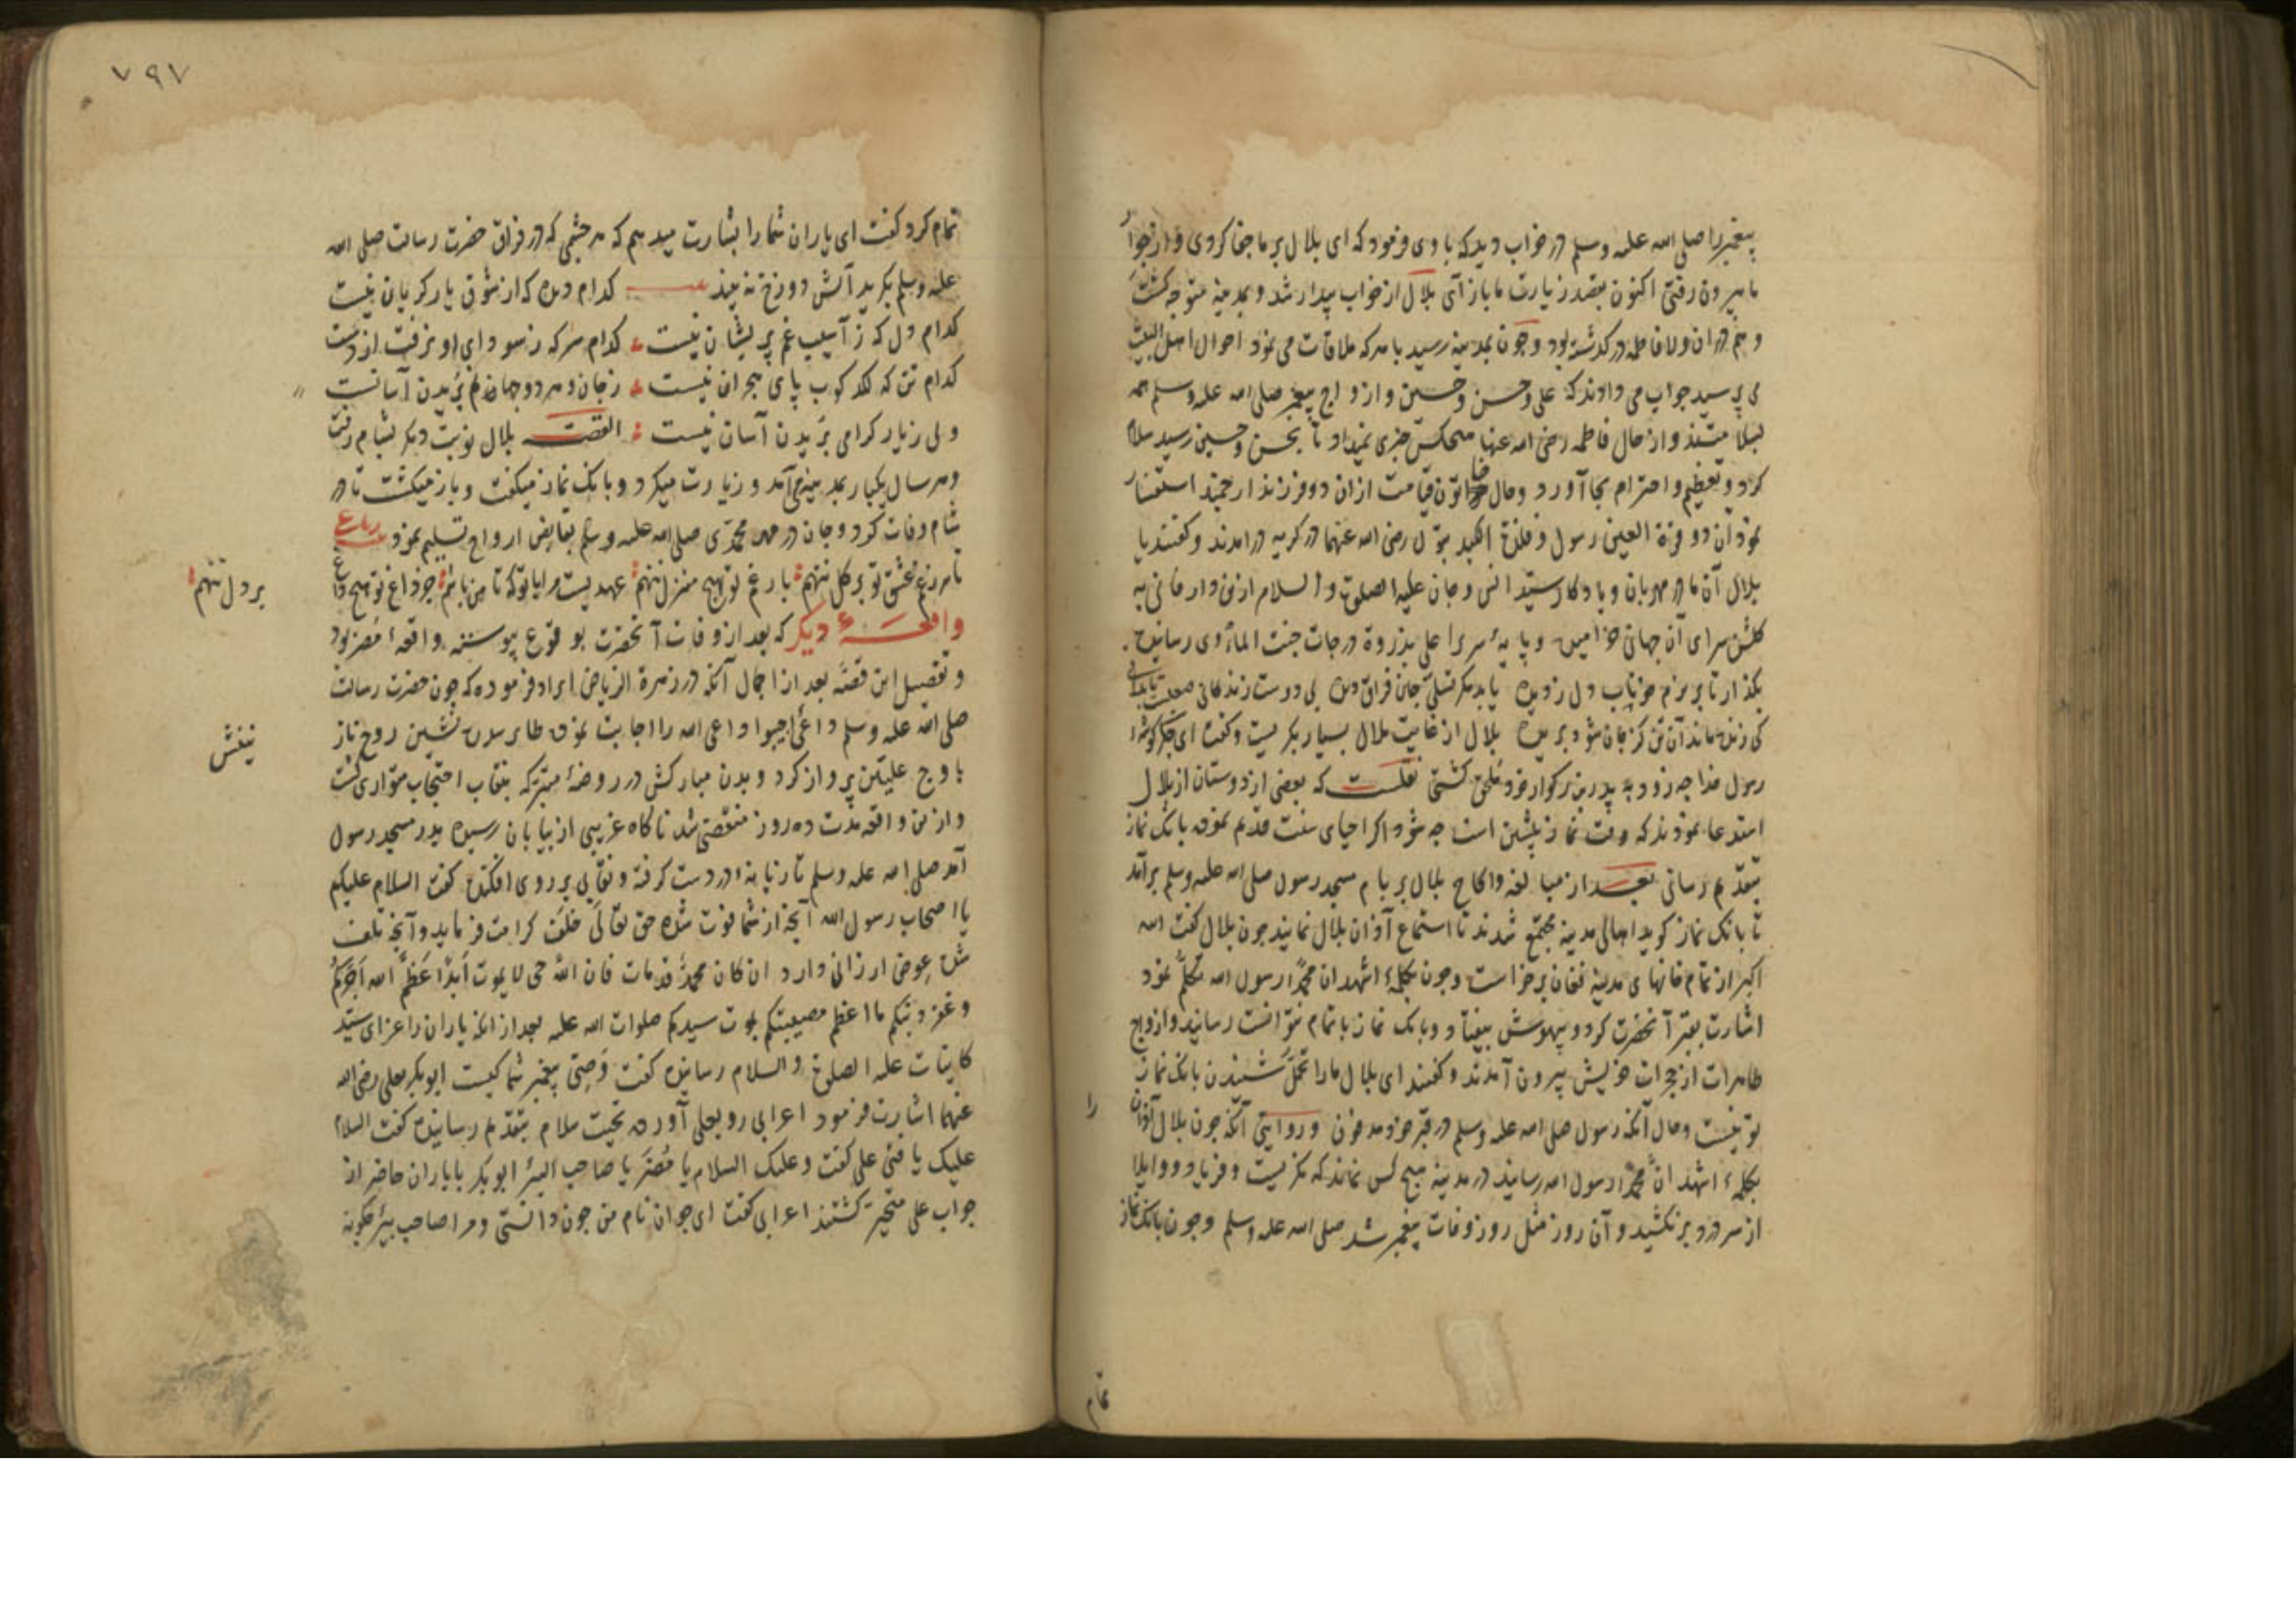 پیغمبر را صلی الله علیه وسلم در خواب دید که با وی فرمود که ای بلال بر ما جفا کردی و از جوار
ما بیرون رفتی اکنون بقصد زیارت ما باز آی بلال از خواب بیدار شد و بمدینه متوجه کشت
و هم در ان ولا فاطمه در کذشته بود و چون بمدینه رسید با هر که ملاقات می نمود احوال اهل البیت
می پرسید جواب می دادند که علی و حسن و حسین و ازواج پیغمبر صلی الله علیه وسلم همه
بسلامتند و از حال فاطمه رضی الله عنها هیچکس خبری نمیداد تا بحسن و حسین رسید سلام
کرد و تعظیم و احترام بجا آورد و حال خاتون قیامت ازان دو فرزند ارجمند استفسار
نمود آن دو قرة العین رسول و فلذة الکبد بتول رضی الله عنهما در کریه در امدند و کفتند یا
بلال آن مادر مهربان و یادکار سید انس و جان علیه الصلوة والسلام ازین دار فانی به
کلشن سرای آن جهانی خرامید و پایهٔ سریر اعلی بذروة درجات جنت المأوی رسانید
بکذار تا بریزم خوناب دل ز دیده
کی زنده ماند آن تن کز جان شود بریده بلال از غایت ملال بسیار بکریست و کفت ای جکرکوشهٔ
رسول خدا چه زود به پدر بزرکوار خود ملحق کشتی نقلست که بعضی از دوستان از بلال
استدعا نمودند که وقت نماز پیشین است چه شود اکر احیای سنت قدیم نموده بانک نماز
بتقدیم رسانی بعد از مبالغه و الحاح بلال بر بام مسجد رسول صلی الله علیه وسلم برآمد
تا بانک نماز کوید اهالی مدینه مجتمع شدند تا استماع آذان بلال نمایند چون بلال کفت الله
اکبر از تمام خانهای مدینه فغان برخاست و چون بکلمهٔ اشهد ان محمدا رسول الله تکلم نمود
اشارت بقبر آنحضرت کرد و بیهوش بیفتاد و بانک نماز باتمام نتوانست رسانید و ازواج
طاهرات از حجرات خویش بیرون آمدند و کفتند ای بلال ما را تحمل شنیدن بانک نماز
تو نیست و حال آنکه رسول صلی الله علیه وسلم در قبر خود مدفون و روایتی آنکه چون بلال آذان
را
بکلمهٔ اشهد ان محمدا رسول الله رسانید در مدینه هیچ کس نماند که نکریست و فریاد و واویلا
از سر درد برنکشید و آن روز مثل روز وفات پیغمبر شد صلی الله علیه وسلم و چون بانک نماز
تمام
۷۹۷
تمام کرد کفت ای یاران شما را بشارت میدهم که هر چشمی که در فراق حضرت رسالت صلی الله
علیه وسلم بکرید آتش دوزخ نه بیند کدام دیده که از شوق یار کریان نیست
کدام دل که ز آسیب غم پریشان نیست کدام سر که ز سودای او نرفت از دست
کدام تن که لکدکوب پای هجران نیست ز جان و هر دو جهان هم بریدن آسانست
ولی ز یار کرامی بریدن آسان نیست القصه بلال نوبت دیکر بشام رفت
و هر سال یکبار بمدینه می آمد و زیارت میکرد و بانک نماز میکفت و باز میکشت تا در
شام وفات کرد و جان در مهر محمدی صلی الله علیه وسلم بقابض ارواح تسلیم نمود رباعی
عهدیست مرا با تو که تا من باشم جز داغ تو هیچ داغ
بر دل ننهم
واقعهٔ دیکر که بعد از وفات آنحضرت بوقوع پیوسته واقعهٔ مضر بود
و تفصیل این قصه بعد از اجمال آنکه در زهرة الریاض ایراد فرموده که چون حضرت رسالت
صلی الله علیه وسلم داعی اجیبوا داعی الله را اجابت نموده طایر سدره نشین روح نازنینش
باوج علیین پرواز کرد و بدن مبارکش در روضهٔ متبرکه بنقاب احتجاب متواری کشت
و ازین واقعه مدت ده روز منقضی شد ناکاه عربی از بیابان رسیده بدر مسجد رسول
آمد صلی الله علیه وسلم تازیانه در دست کرفته و نقابی بر روی افکنده کفت السلام علیکم
یا اصحاب رسول الله آنچه از شما فوت شده حق تعالی خلف کرامت فرماید و آنچه تلف
شده عوض ارزانی دارد ان کان محمد قد مات فان الله حی لا یموت ابدا عظم الله اجرکم
ما اعظم مصیبتکم بموت سیدکم صلوات الله علیه بعد ازانکه یاران را عزای سید
کاینات علیه الصلوة والسلام رسانیده کفت وصی پیغمبر شما کیست ابوبکر بعلی رضی الله
عنهما اشارت فرمود اعرابی رو بعلی آورده تحیت سلام بتقدیم رسانیده کفت السلام
علیک یا فتی علی کفت و علیک السلام یا مضر یا صاحب البئر ابوبکر با یاران حاضر از
جواب علی متحیر کشتند اعرابی کفت ای جوان نام من چون دانستی و مرا صاحب بئر چکونه